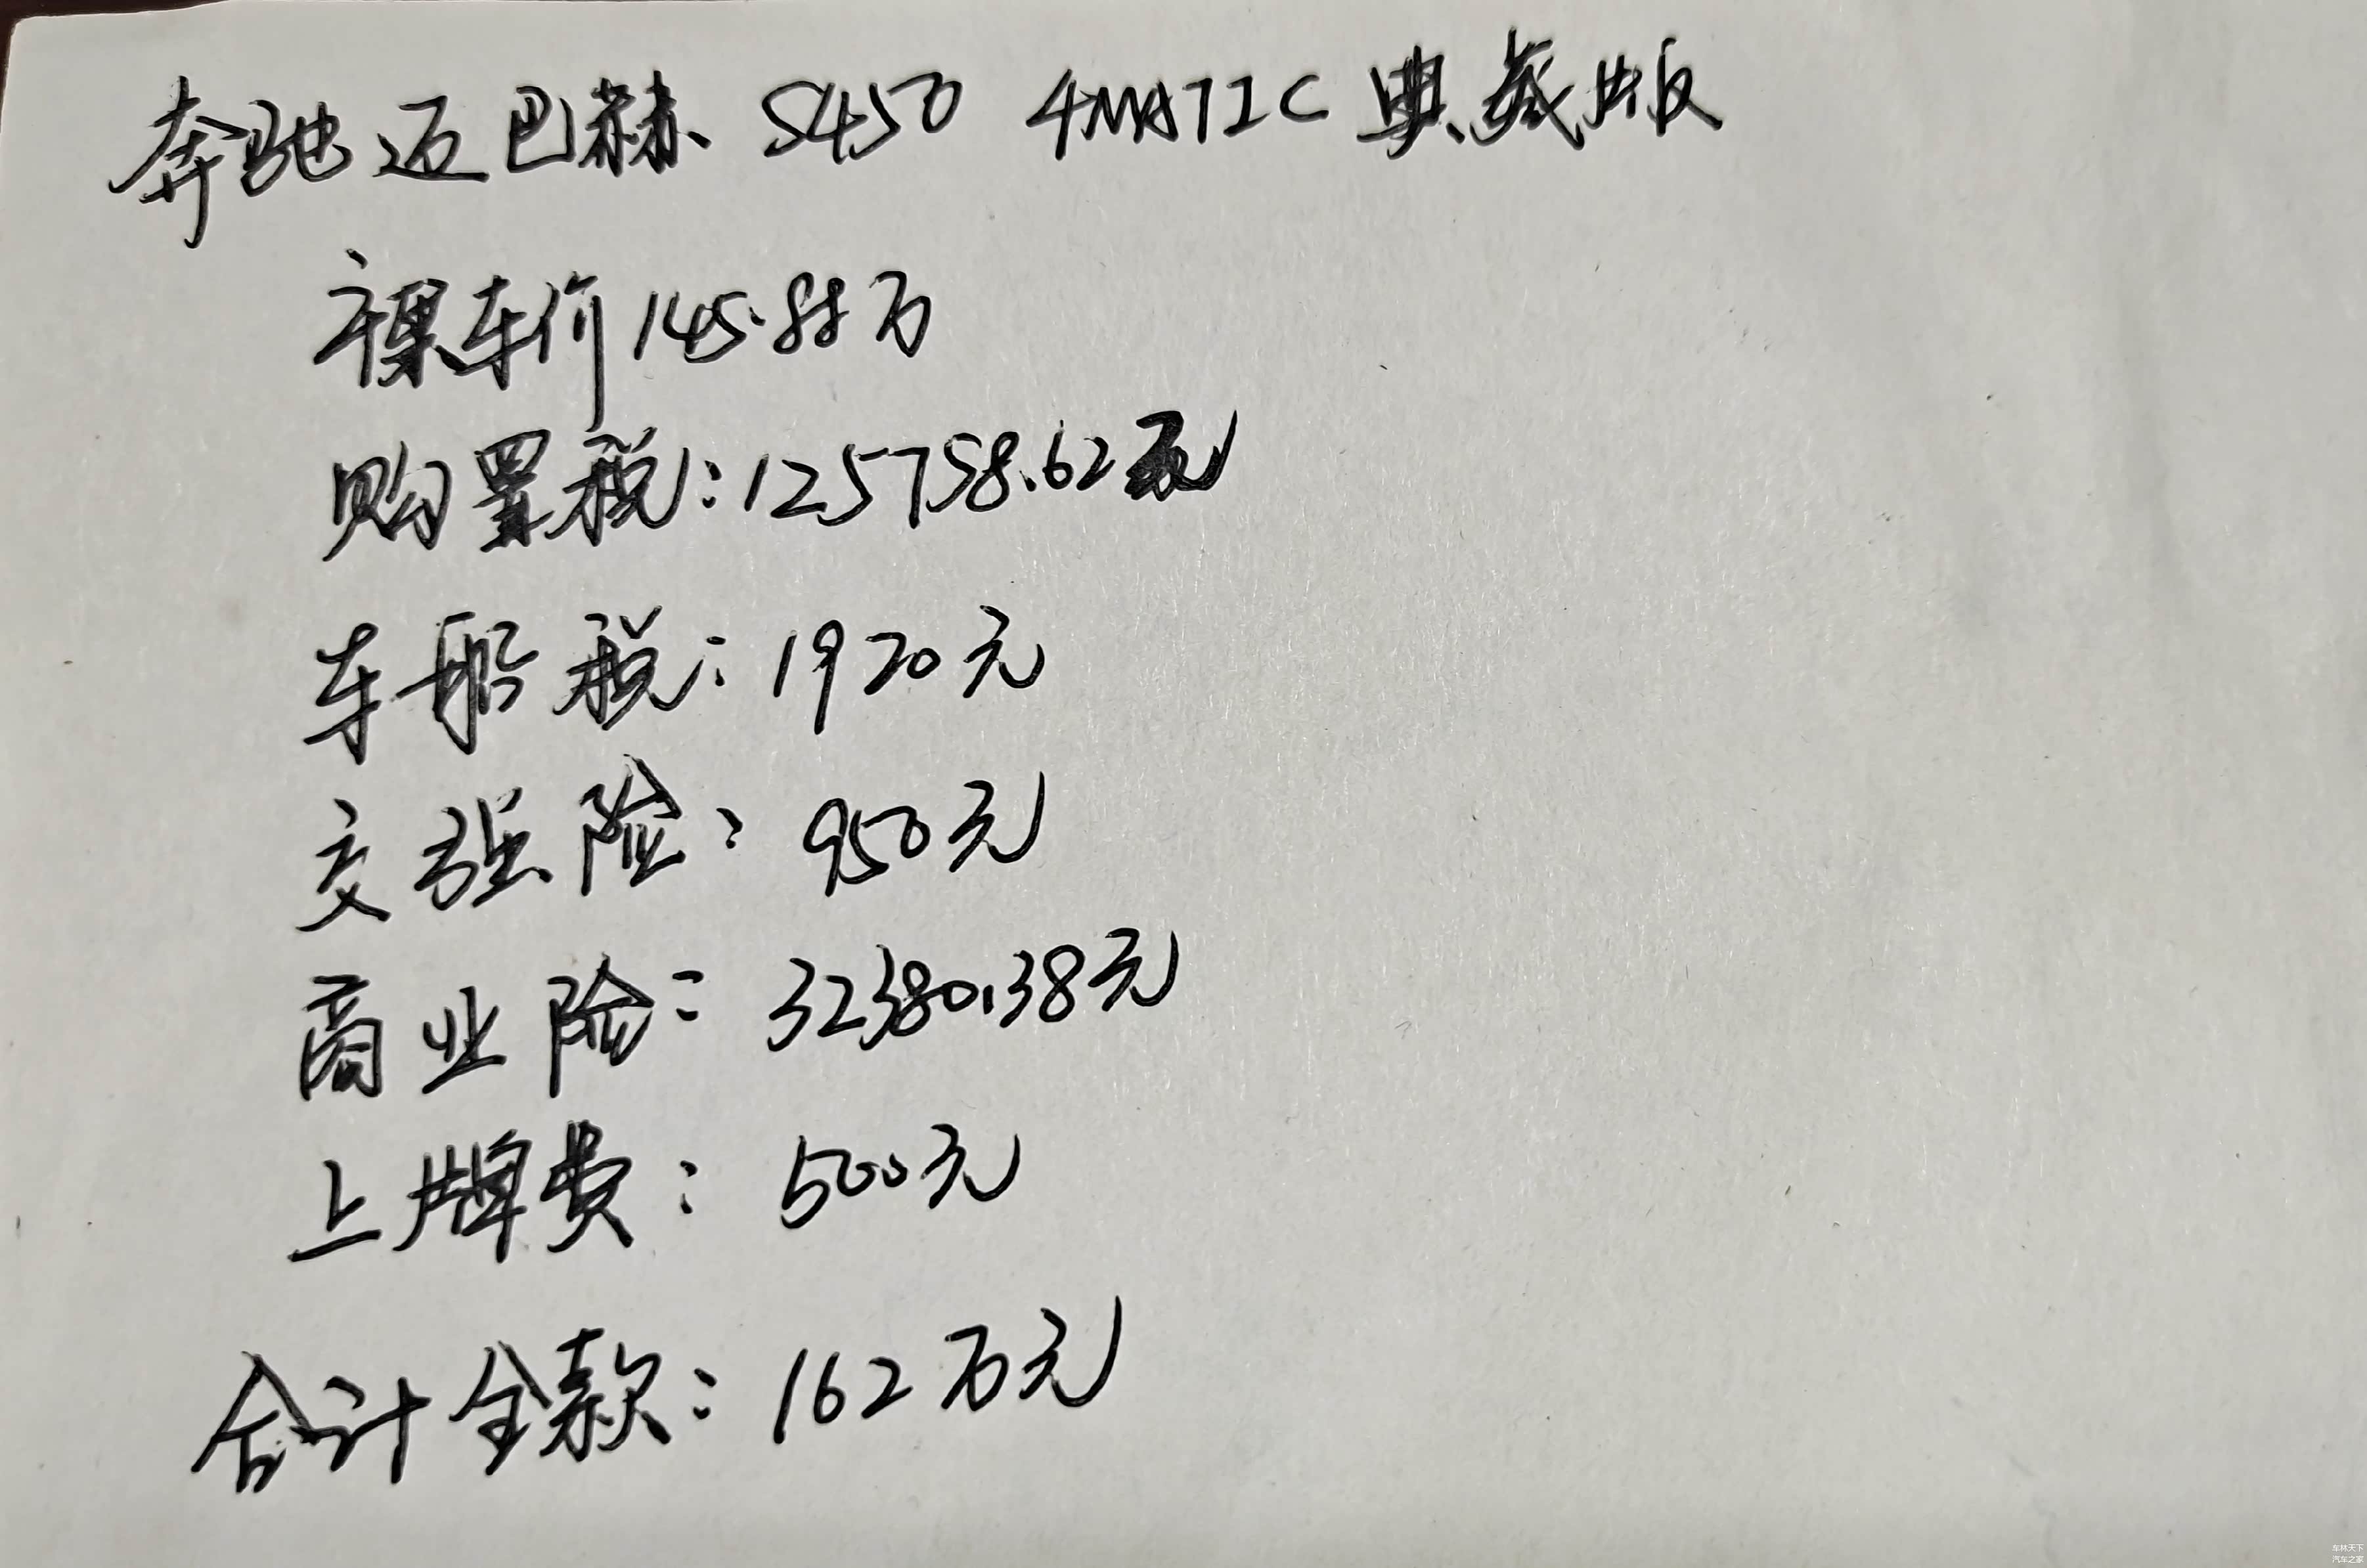 奔驰迈巴赫 S450 4MATIC 典藏版
裸车价145.88万
购置税:125758.62元
车船税:1920元
交强险:950元
商业险:32380.38元
上牌费:500元
合计全款:162万元
车林天下
汽车之家